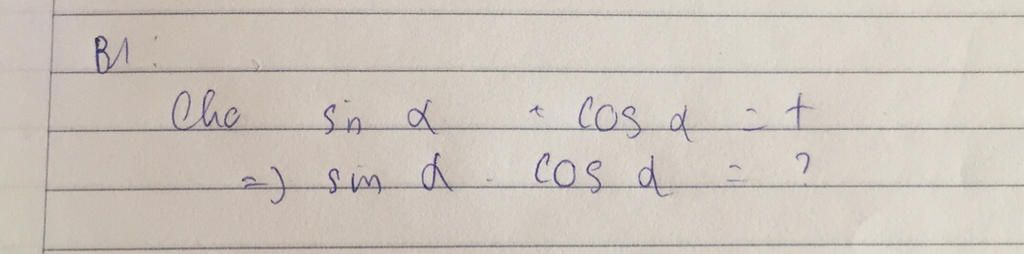 B1:
Cho sin α + cos α = t
=> sin α . cos α = ?